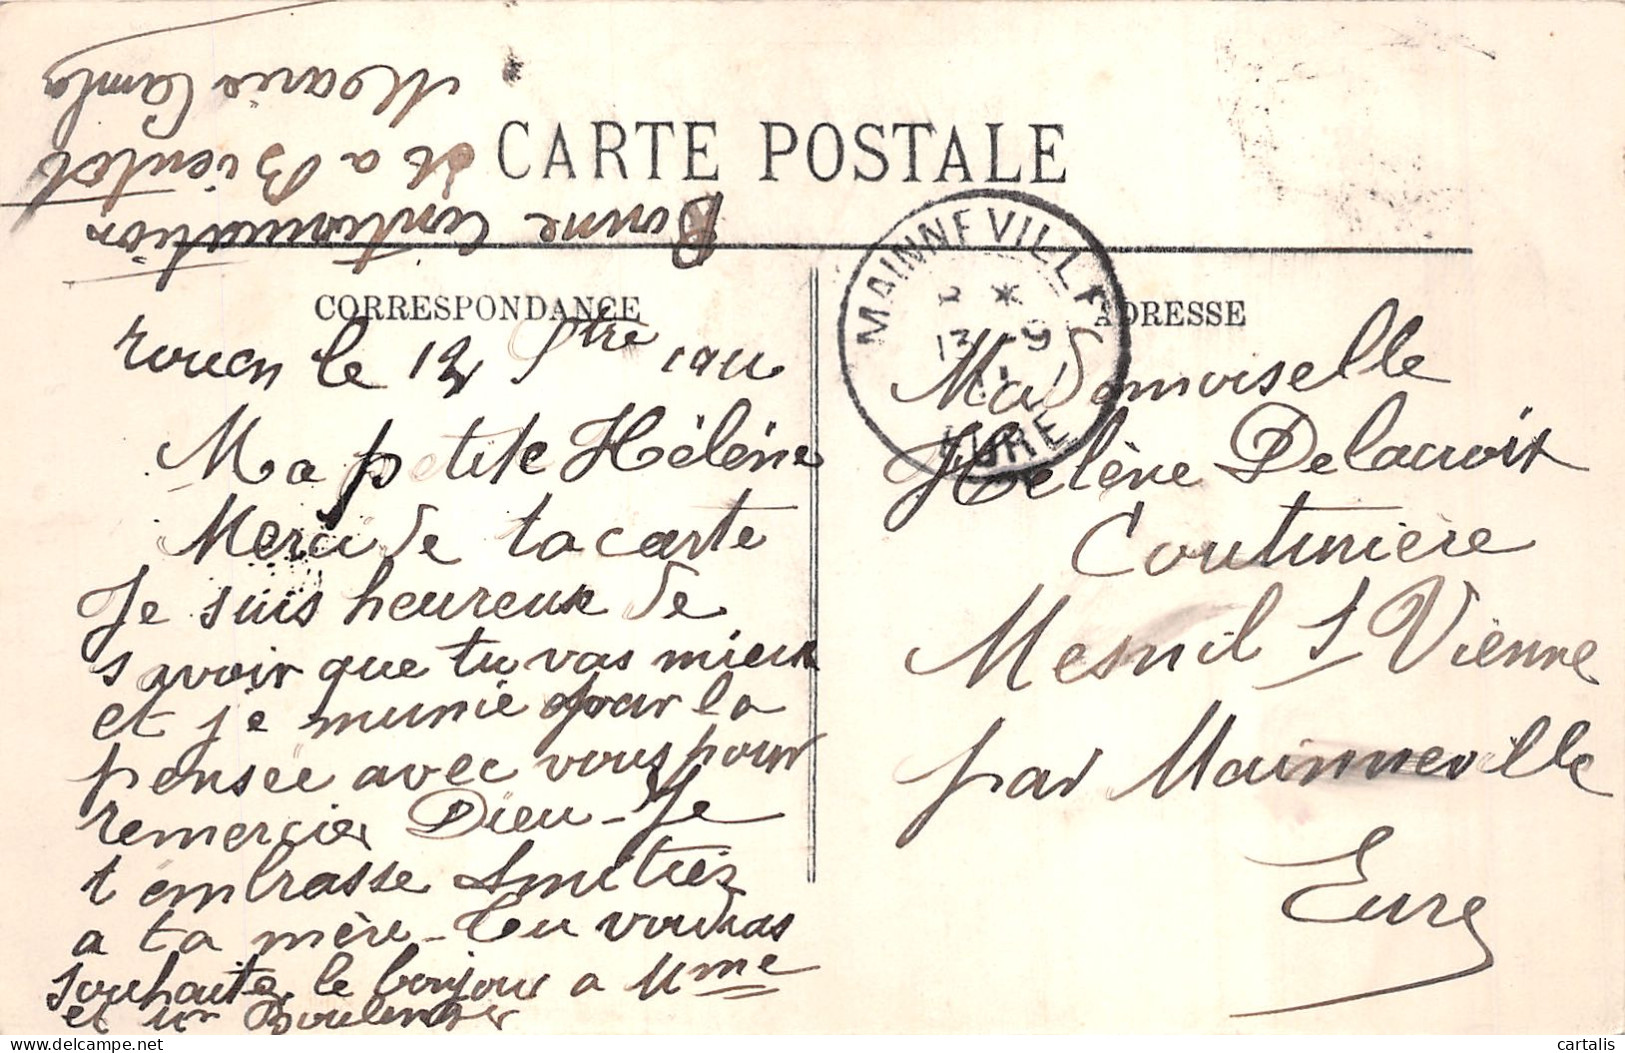 CARTE POSTALE
CORRESPONDANCE
Rouen le 12 Sbtre 1911
Ma petite Hélène
Merci de ta carte
Je suis heureux de
savoir que tu vas mieux
et je munie pour la
pensee avec vous pour
remercier Dieu - Je
t embrasse Amitiez
a ta mère - Tu voudras
souhaiter le bonjour a Mme
et Mr Boulenger
Bonne Continuation
et a Bientot
Marie
ADRESSE
Mademoiselle
Hélène Delacroix
Couturière
Mesnil S Vienne
par Mainneville
Eure
MAINNEVILLE
* 
13 -9
11
EURE
cartalis